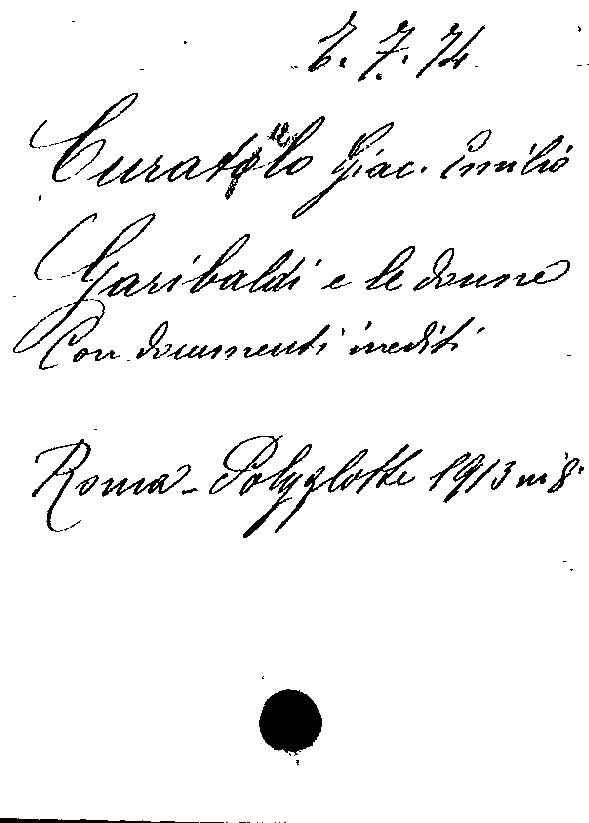 7. 7. 74
Curatolo Giac. Emilio
Garibaldi e le donne
Con documenti inediti
Roma - Polyglotte 1913 in 8°